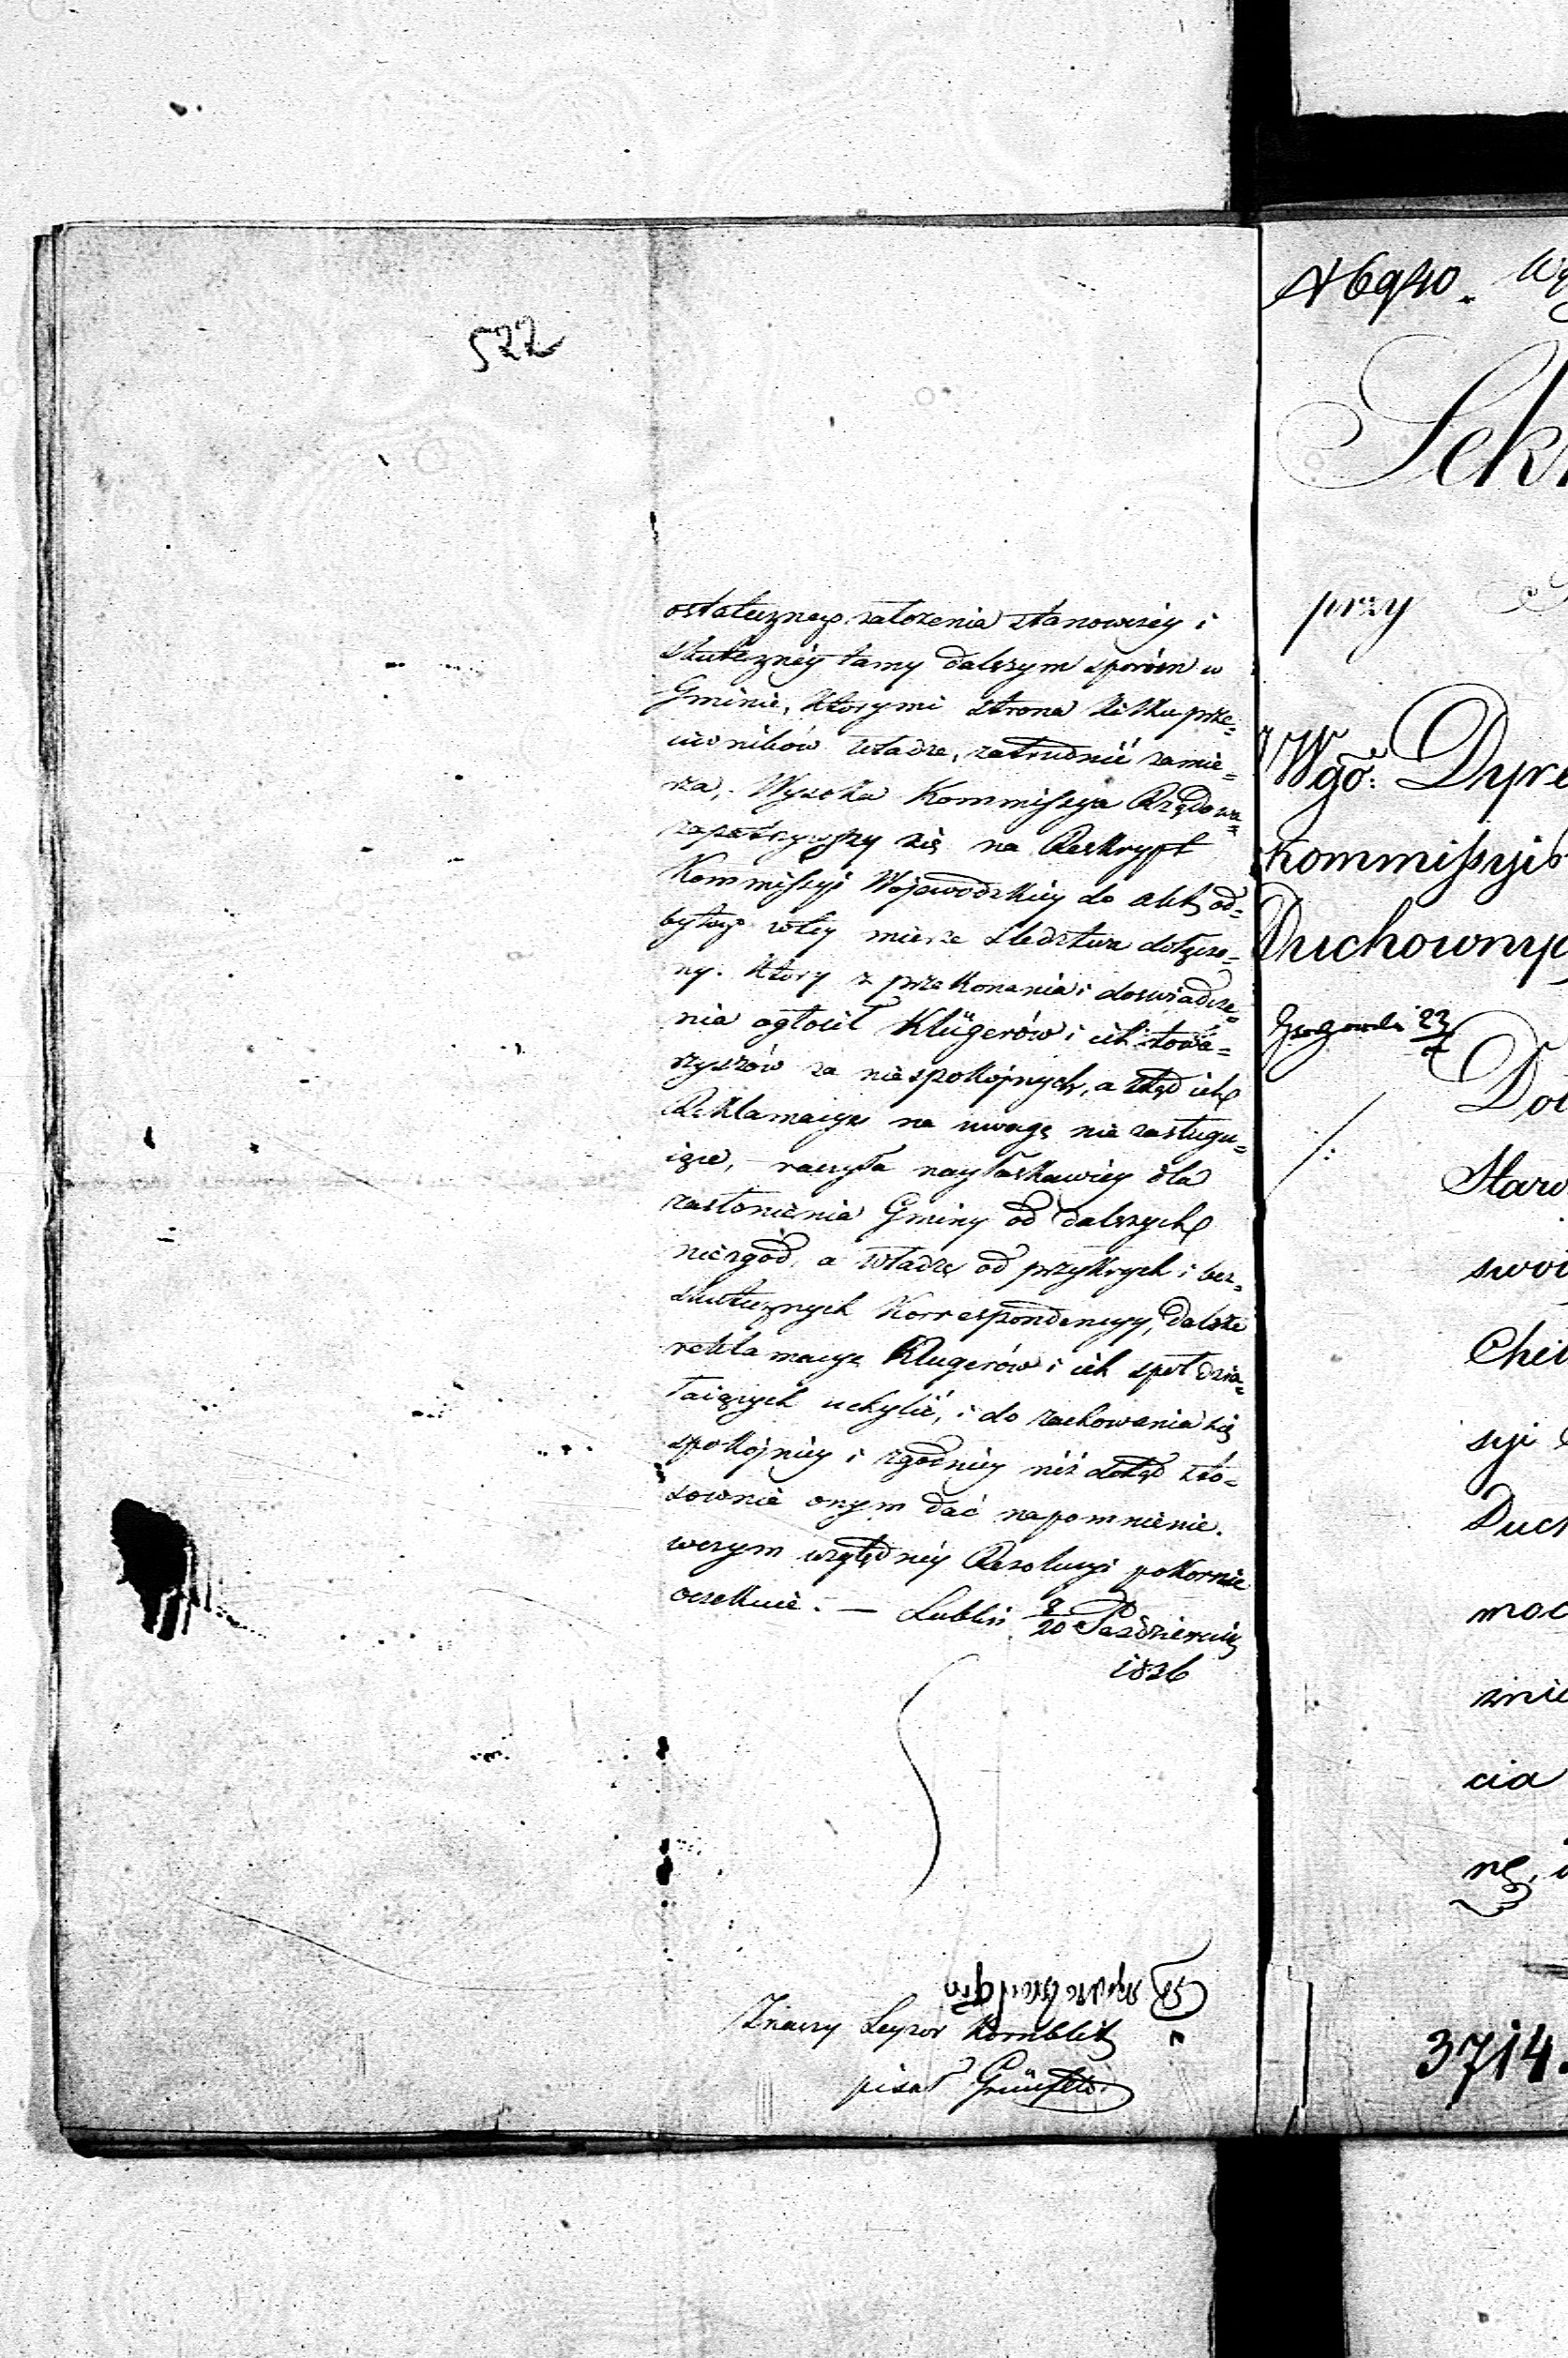 522
ostatecznego założenia stanowczey i
skuteczney tamy dalszym sporóm w
Gminie, któremi strona kilku prze=
ciwników władze, zatrudnić zamie=
rza, Wysoka Kommissya Rządowa
zapatrzywszy się na Reskrypt
Kommissyi Wojewodzkiey do akt od=
bytego wtey mierze śledztwa dołączo=
ny. który z przekonania i doswiadcze=
nia ogłosił Klügerów i ich towa=
rzyszów za niespokojnych, a ztąd ich
Reklamacye na uwagę nie zasługu=
iące, raczyła nayłaskawiey dla
zasłonienia Gminy od dalszych
niezgód, a władzę od przykrych i bez=
skutecznych Korrespondencyy, dalsze
reklamacye Klugerów i ich społdzia=
łaiących uchylić, i do zachowania się
spokojniey i zgodniey niż dotąd sto=
sownie onym dać napomnienie.
wczym względney Rezolucyi pokornie
oczekuie. — Lublin 8/20 Paździer
1826
Znaczy Leyzor Kornblit
pisał Grünfeld
N 6940.
Sek
przy
Wgo: Dyre
Kommissyi
Duchownyc
23
Do
Staw
swoi
Chei
syi
Duch
moc
znie
cia
nę,
3714.